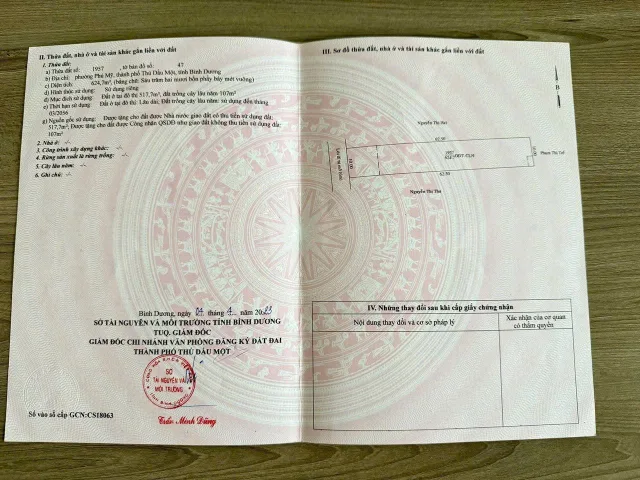 II. Thửa đất, nhà ở và tài sản khác gắn liền với đất
1. Thửa đất:
a) Thửa đất số: 1957 , tờ bản đồ số: 47
b) Địa chỉ: phường Phú Mỹ, thành phố Thủ Dầu Một, tỉnh Bình Dương
c) Diện tích: 624,7m², (bằng chữ: Sáu trăm hai mươi bốn phẩy bảy mét vuông)
d) Hình thức sử dụng: Sử dụng riêng
đ) Mục đích sử dụng: Đất ở tại đô thị 517,7m²; Đất trồng cây lâu năm 107m²
e) Thời hạn sử dụng: Đất ở tại đô thị: Lâu dài; Đất trồng cây lâu năm: sử dụng đến tháng
03/2056
g) Nguồn gốc sử dụng: Được tặng cho đất được Nhà nước giao đất có thu tiền sử dụng đất:
517,7m²; Được tặng cho đất được Công nhận QSDĐ như giao đất không thu tiền sử dụng đất:
107m²
2. Nhà ở: -/-
3. Công trình xây dựng khác: -/-
4. Rừng sản xuất là rừng trồng: -/-
5. Cây lâu năm: -/-
6. Ghi chú: -/-
Bình Dương, ngày 04 tháng 4 năm 2023
SỞ TÀI NGUYÊN VÀ MÔI TRƯỜNG TỈNH BÌNH DƯƠNG
TUQ. GIÁM ĐỐC
GIÁM ĐỐC CHI NHÁNH VĂN PHÒNG ĐĂNG KÝ ĐẤT ĐAI
THÀNH PHỐ THỦ DẦU MỘT
SỞ
TÀI NGUYÊN VÀ
MÔI TRƯỜNG
Trần Minh Dũng
Số vào sổ cấp GCN:CS18063
III. Sơ đồ thửa đất, nhà ở và tài sản khác gắn liền với đất
B
Nguyễn Thị
Phạm Thị
62.50
Nguyễn Thị
IV. Những thay đổi sau khi cấp giấy chứng nhận
Nội dung thay đổi và cơ sở pháp lý
Xác nhận của cơ quan
có thẩm quyền